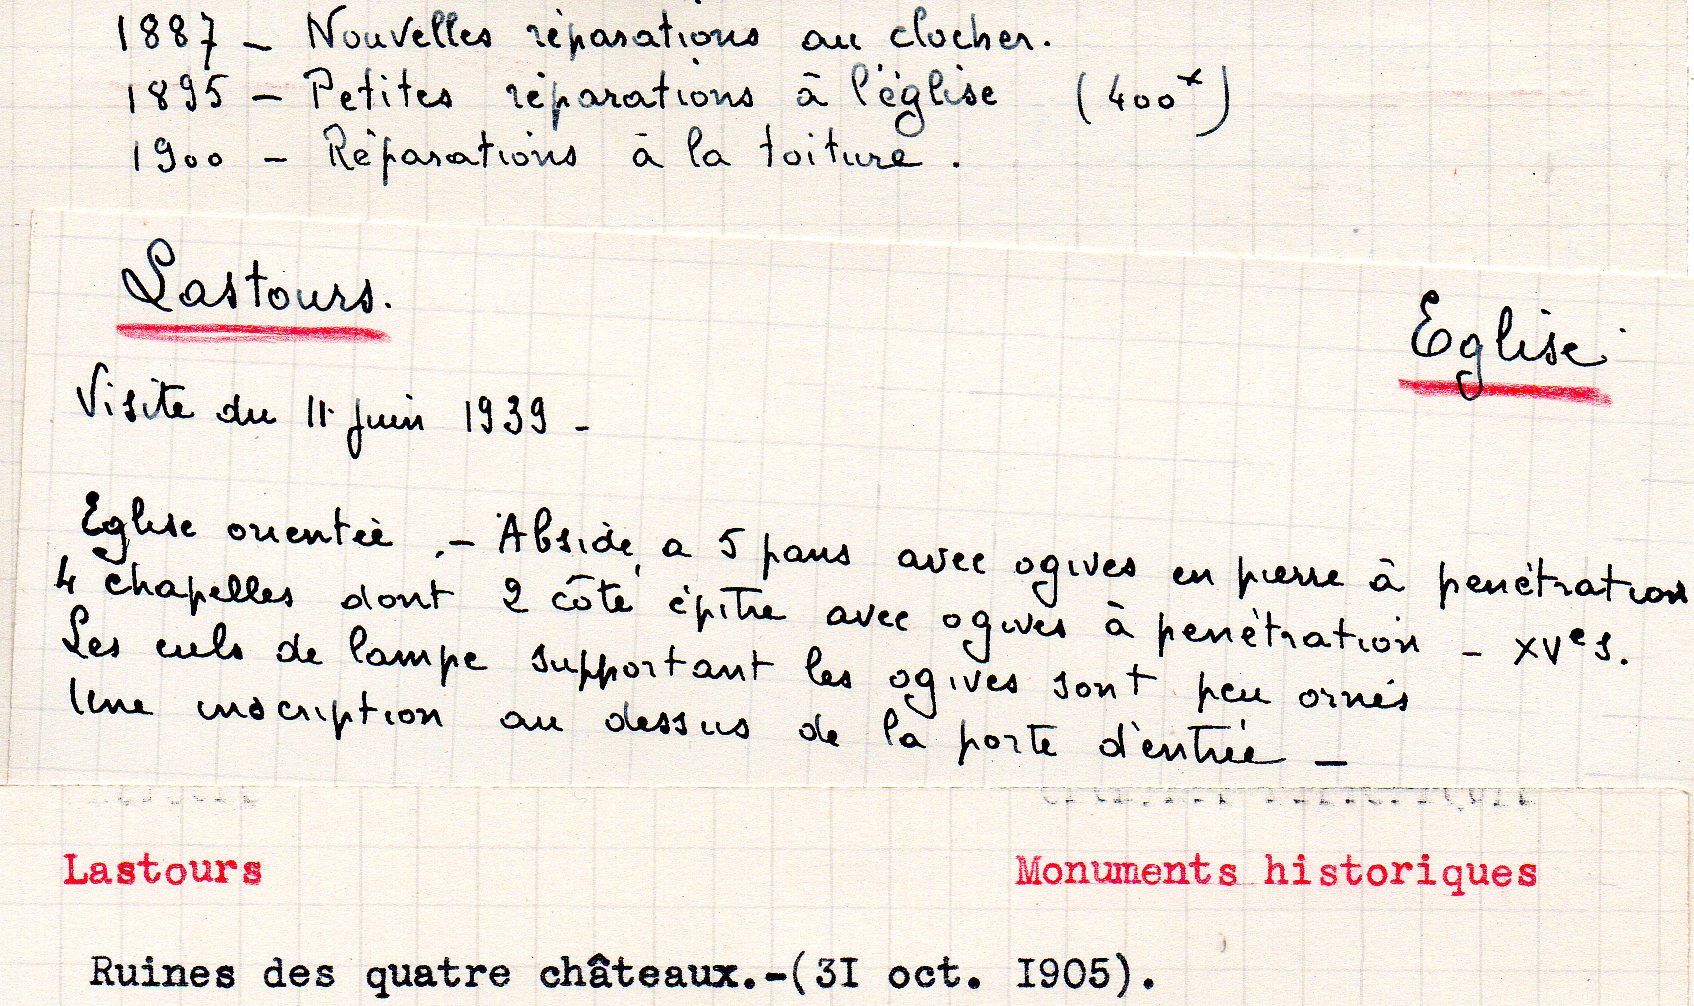 1887 - Nouvelles réparations au clocher.
1895 - Petites réparations à l'église (400x)
1900 - Réparations à la toiture.
Lastours.
Eglise
Visite du 11 juin 1939 -
Eglise orientée. - Abside a 5 pans avec ogives en pierre à penétration
4 chapelles dont 2 côté épitre avec ogives à penétration - XVe s.
Les culs de lampe supportant les ogives sont peu ornés
Une inscription au dessus de la porte d'entrée -
Lastours
Monuments historiques
Ruines des quatre châteaux.-(3I oct. I905).